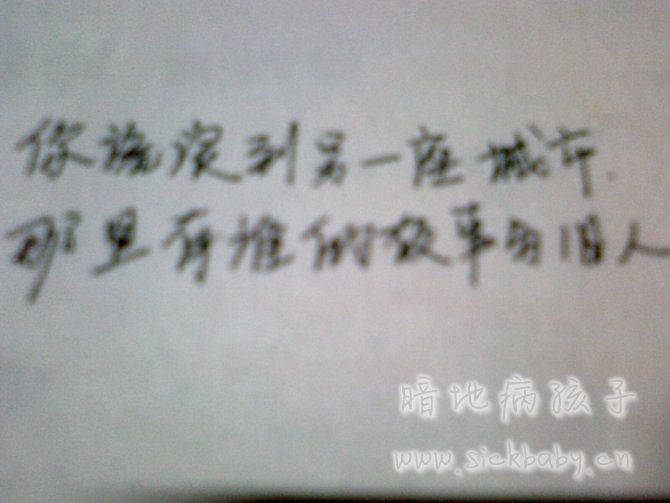 你说深到另一座城市.
那里有谁的故事与旧人
暗地病孩子
www.sickbaby.cn